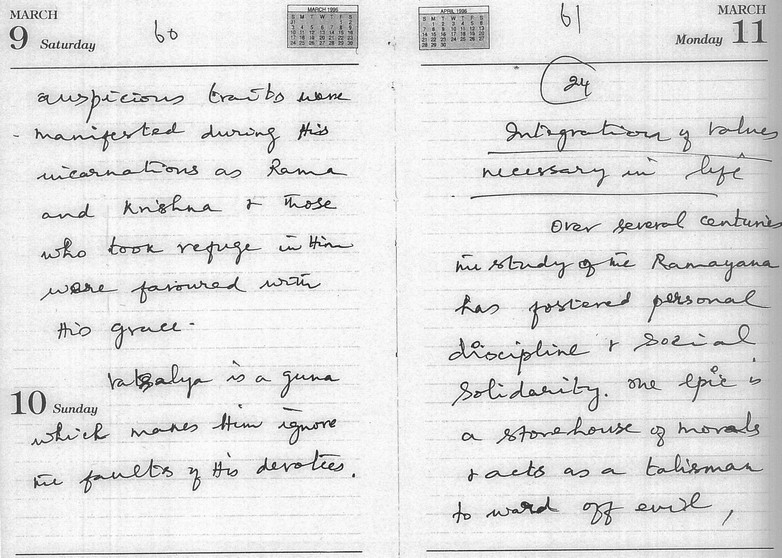 MARCH
9 Saturday
60
MARCH 1996
auspicious traits were
manifested during His
incarnations as Rama
and Krishna & those
who took refuge in Him
were favoured with
His grace.
Vatsalya is a guna
10 Sunday
which makes Him ignore
the faults of His devotees.
APRIL 1996
61
MARCH
Monday 11
24
Integration of values
necessary in life
Over several centuries
the study of the Ramayana
has fostered personal
discipline & social
solidarity. The epic is
a storehouse of morals
& acts as a talisman
to ward off evil,